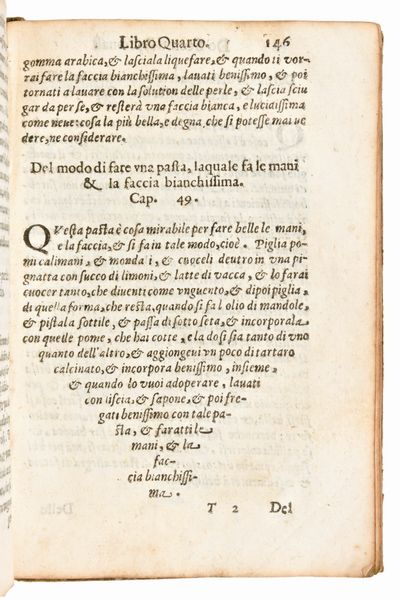 Libro Quarto. 146
gomma arabica, & lasciala liquefare, & quando ti vor-
rai fare la faccia bianchissima, lauati benissimo, & poi
tornati a lauare con la solution delle perle, & lascia sciu
gar da per se, & resterà vna faccia bianca, e lucidissima
come neue: cosa la più bella, e degna che si potesse mai ve
dere, ne considerare.
Del modo di fare vna pasta, laquale fa le mani
& la faccia bianchissima.
Cap. 49.
QVesta pasta è cosa mirabile per fare belle le mani,
e la faccia, & si fa in tale modo, cioè. Piglia po-
mi calimani, & monda i, & cuoceli dentro in vna pi-
gnatta con succo di limoni, & latte di vacca, & lo farai
cuocer tanto, che diuenti come vnguento, & dipoi piglia,
di quella forma, che resta, quando si fa l olio di mandole,
& pistala sottile, & passa di sotto seta, & incorporala
con quelle pome, che hai cotte, e la dosi sia tanto di vno
quanto dell'altro, & aggiongeui vn poco di tartaro
calcinato, & incorpora benissimo, insieme,
& quando lo vuoi adoperare, lauati
con liscia, & sapone, & poi fre-
gati benissimo con tale pa-
sta, & faratti le
mani, & la
fac-
cia bianchissi-
ma.
T 2 Del